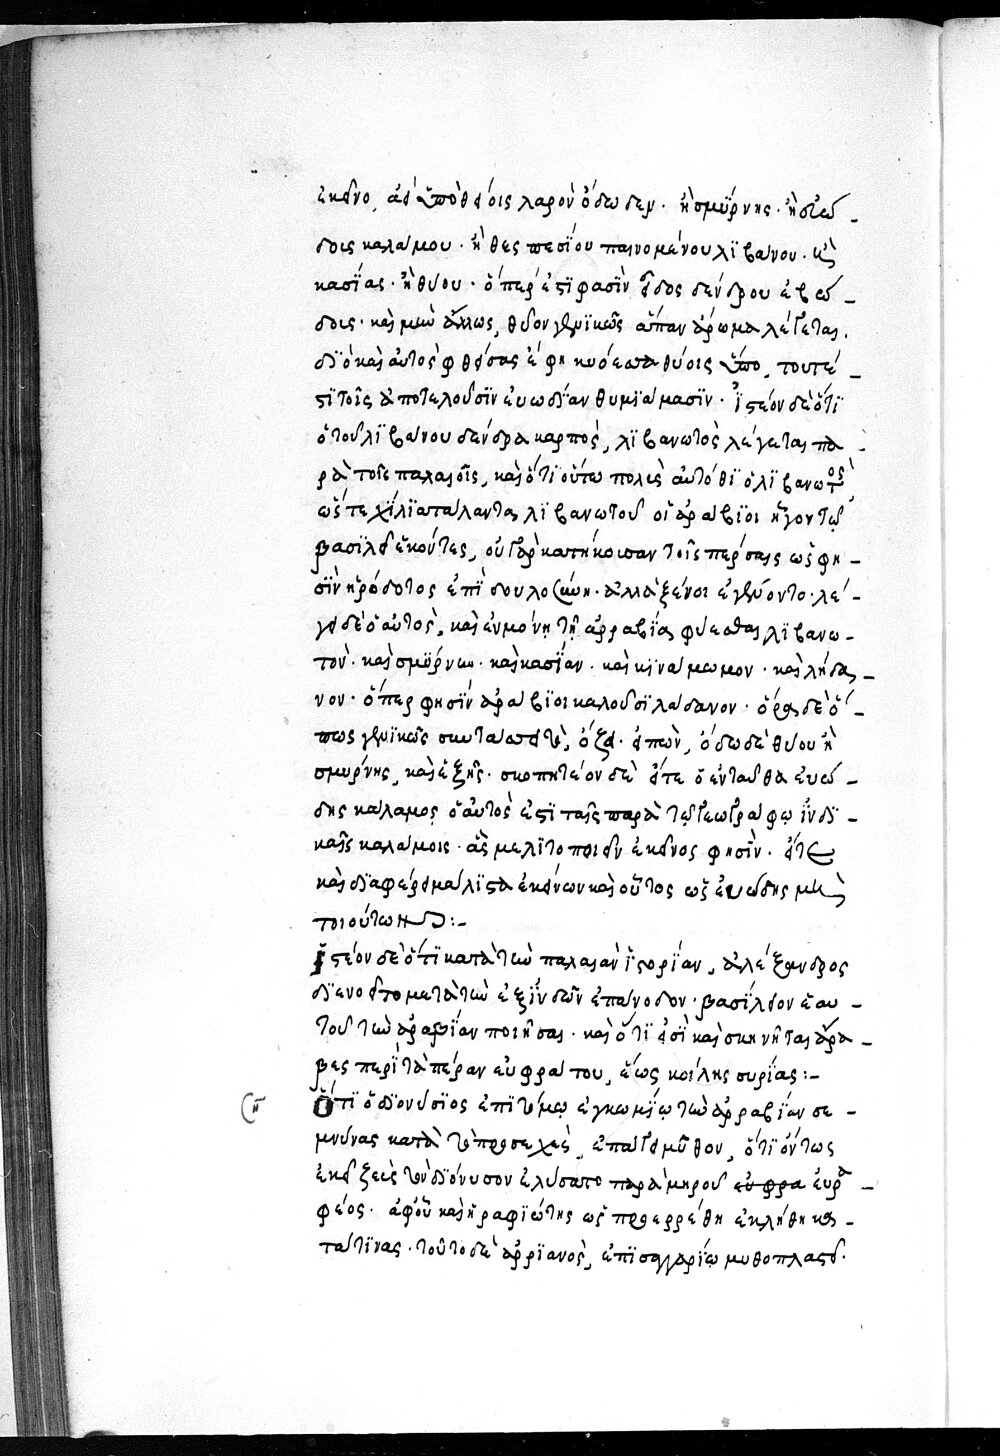 ἐκεῖνο, ἀεὶ ὑπὸ θείοις λαρὸν ὄδωδεν. ἢ σμύρνης. ἢ εὐώ-
δους καλάμου. ἢ θεσπεσίου πιαινομένου λιβάνου. καὶ
κασίας. ἢ θύου. ὅπερ ἐστὶ φασὶν εἶδος δένδρου εὐώ-
δους. καὶ μὴν ἄλλως, θύον γενικῶς ἅπαν ἄρωμα λέγεται.
διὸ καὶ αὐτὸς φθάσας ἔφη θύοις ὕπο, τουτέ-
στι τοῖς ἀποτελοῦσιν εὐωδίαν θυμιάμασιν. ἰστέον δὲ ὅτι
ὁ τοῦ λιβάνου δένδρα καρπὸς, λιβανωτὸς λέγεται πα-
ρὰ τοῖς παλαιοῖς, καὶ ὅτι οὕτω πολὺς αὐτόθι ὁ λιβανωτὸς
ὥστε χίλια τάλαντα λιβανωτοῦ οἱ ἀράβιοι ἦγον τῷ
βασιλεῖ ἑκόντες, οὐ γὰρ κατήκουσαν τοῖς πέρσαις ὥς φη-
σὶν ἡρόδοτος ἐπὶ δουλοσύνη. ἀλλὰ ξένοι ἐγένοντο. λέ-
γει δὲ ὁ αὐτὸς, καὶ ἐν μόνη τῇ ἀρραβία φύεσθαι λιβανω-
τὸν. καὶ σμύρνην. καὶ κασίαν. καὶ κινάμωμον. καὶ λήδα-
νον. ὅπερ φησὶν ἀράβιοι καλοῦσι λάδανον. ὅρα δὲ ὅ-
πως γενικῶς τὸ, ὄζει. εἰπὼν, ὄδωδε θύου ἢ
σμύρνης, καὶ ἑξῆς. σκοπητέον δὲ εἴτε ὁ ἐνταῦθα εὐώ-
δης κάλαμος ὁ αὐτὸς ἐστὶ ταῖς παρὰ τῷ γεωγράφῳ ἰνδι-
καῖς καλάμοις. ἃς μελιτοποιεῖν ἐκεῖνος φησὶν. εἴτε
καὶ διαφέρει μάλιστα ἐκείνων καὶ οὗτος ὡς εὐώδης μὴ
τοιούτων :-
Ἰστέον δὲ ὅτι κατὰ τὴν παλαιὰν ἱστορίαν, ἀλέξανδρος
διενοεῖτο μετὰ τὴν ἐξ ἰνδῶν ἐπάνοδον. βασίλειον ἑαυ-
τοῦ τὴν ἀραβίαν ποιῆσαι. καὶ ὅτι εἰσὶ καὶ σκηνῆται ἄρα-
βες περὶ τὰ πέραν εὐφράτου, ἕως κοίλης συρίας :-
Ὅτι ὁ διονύσιος ἐπιτόμῳ ἐγκωμίῳ τὴν ἀρραβίαν σε-
μνύνας κατὰ τὸ προσεχὲς, ἐπάγει μῦθον, ὅτι ὄντως
ἐκεῖ ζεὺς τὸν διόνυσον ἐλύσατο παρὰ μηροῦ εὐφρα εὐρα-
φέος. ἀφ' οὗ καὶ ἡραφιώτης ὡς προερρέθη ἐκλήθη κα-
τά τινας. τοῦτο δὲ ἀρριανὸς, ἐπὶ σαγγαρίῳ μυθοπλαστεῖ.